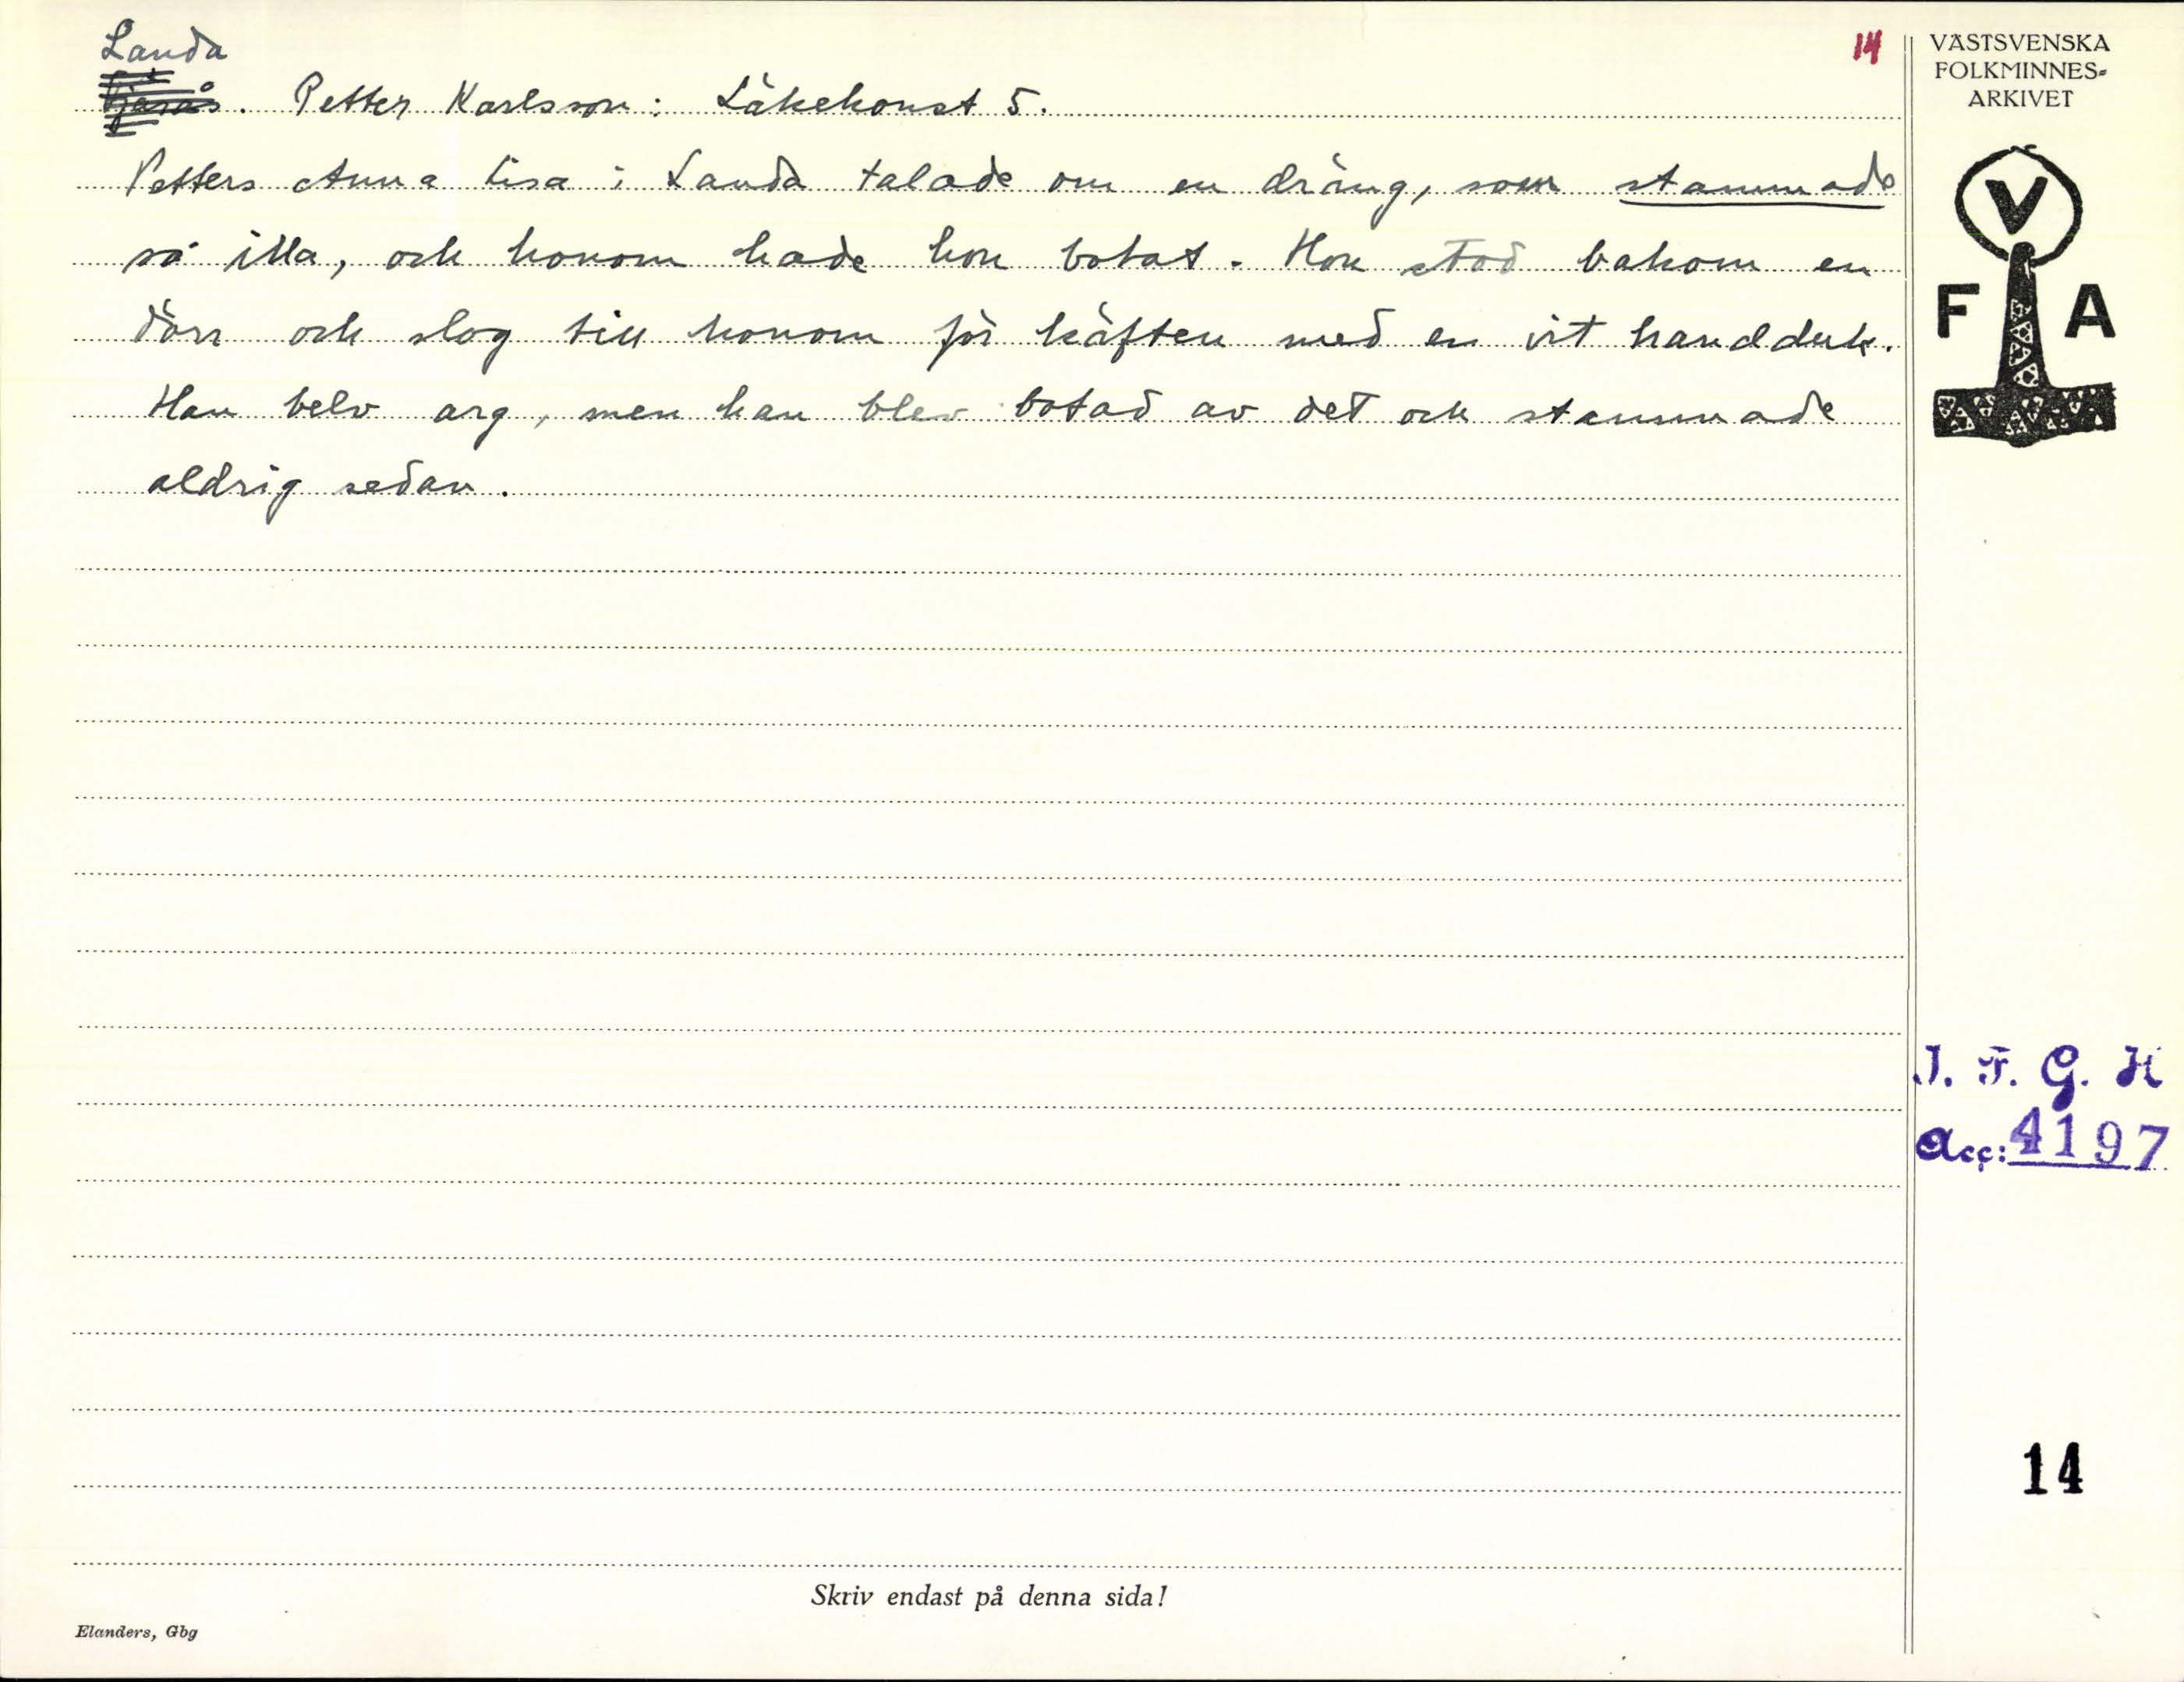 Landa
Fjärås. Petter Karlsson: Läkekonst 5.
14
Petters Anna Lisa i Landa talade om en dräng, som stammade
så illa, och honom hade hon botat. Hon stod bakom en
dörr och slog till honom för käften med en vit handduk.
Han belv arg, men han blev botad av det och stammade
aldrig sedan.
VÄSTSVENSKA
FOLKMINNES-
ARKIVET
V
F A
I. F. G. H
Acc: 4197
14
Skriv endast på denna sida!
Elanders, Gbg